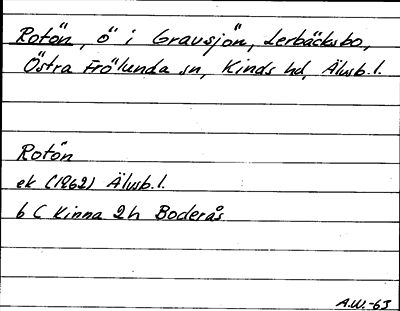 Rotön, ö i Gravsjön, Lerbäcksbo,
Östra Frölunda sn, Kinds hd, Älvsb.l.
Rotön
ek (1962) Älvsb.l.
6 C Kinna 2h Boderås
A.W.-65